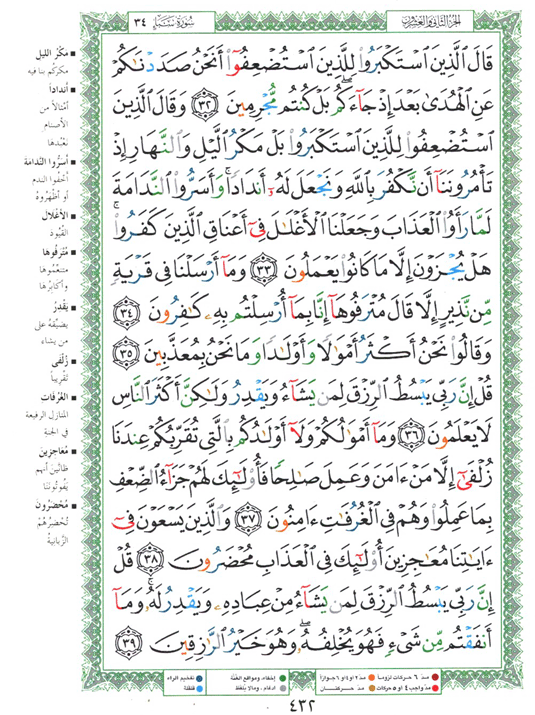 الجزء الثاني والعشرون
سورة سبإ ٣٤
قَالَ ٱلَّذِينَ ٱسۡتَكۡبَرُواْ لِلَّذِينَ ٱسۡتُضۡعِفُوٓاْ أَنَحۡنُ صَدَدۡنَٰكُمۡ
عَنِ ٱلۡهُدَىٰ بَعۡدَ إِذۡ جَآءَكُمۖ بَلۡ كُنتُم مُّجۡرِمِينَ ٣٢ وَقَالَ ٱلَّذِينَ
ٱسۡتُضۡعِفُواْ لِلَّذِينَ ٱسۡتَكۡبَرُواْ بَلۡ مَكۡرُ ٱلَّيۡلِ وَٱلنَّهَارِ إِذۡ
تَأۡمُرُونَنَآ أَن نَّكۡفُرَ بِٱللَّهِ وَنَجۡعَلَ لَهُۥٓ أَندَادٗاۚ وَأَسَرُّواْ ٱلنَّدَامَةَ
لَمَّا رَأَوُاْ ٱلۡعَذَابَۚ وَجَعَلۡنَا ٱلۡأَغۡلَٰلَ فِيٓ أَعۡنَاقِ ٱلَّذِينَ كَفَرُواْۖ
هَلۡ يُجۡزَوۡنَ إِلَّا مَا كَانُواْ يَعۡمَلُونَ ٣٣ وَمَآ أَرۡسَلۡنَا فِي قَرۡيَةٖ
مِّن نَّذِيرٍ إِلَّا قَالَ مُتۡرَفُوهَآ إِنَّا بِمَآ أُرۡسِلۡتُم بِهِۦ كَٰفِرُونَ ٣٤
وَقَالُواْ نَحۡنُ أَكۡثَرُ أَمۡوَٰلٗا وَأَوۡلَٰدٗا وَمَا نَحۡنُ بِمُعَذَّبِينَ ٣٥
قُلۡ إِنَّ رَبِّي يَبۡسُطُ ٱلرِّزۡقَ لِمَن يَشَآءُ وَيَقۡدِرُ وَلَٰكِنَّ أَكۡثَرَ ٱلنَّاسِ
لَا يَعۡلَمُونَ ٣٦ وَمَآ أَمۡوَٰلُكُمۡ وَلَآ أَوۡلَٰدُكُم بِٱلَّتِي تُقَرِّبُكُمۡ عِندَنَا
زُلۡفَىٰٓ إِلَّا مَنۡ ءَامَنَ وَعَمِلَ صَٰلِحٗا فَأُوْلَٰٓئِكَ لَهُمۡ جَزَآءُ ٱلضِّعۡفِ
بِمَا عَمِلُواْ وَهُمۡ فِي ٱلۡغُرُفَٰتِ ءَامِنُونَ ٣٧ وَٱلَّذِينَ يَسۡعَوۡنَ فِيٓ
ءَايَٰتِنَا مُعَٰجِزِينَ أُوْلَٰٓئِكَ فِي ٱلۡعَذَابِ مُحۡضَرُونَ ٣٨ قُلۡ
إِنَّ رَبِّي يَبۡسُطُ ٱلرِّزۡقَ لِمَن يَشَآءُ مِنۡ عِبَادِهِۦ وَيَقۡدِرُ لَهُۥۚ وَمَآ
أَنفَقۡتُم مِّن شَيۡءٖ فَهُوَ يُخۡلِفُهُۥۖ وَهُوَ خَيۡرُ ٱلرَّٰزِقِينَ ٣٩
■ مكر الليل
مكركم بنا فيه
■ أندادا
أمثالا من
الأصنام
نعبدها
■ أسروا الندامة
أخفوا الندم
أو أظهروه
■ الأغلال
القيود
■ مترفوها
متنعموها
وأكابرها
■ يقدر
يضيقه على
من يشاء
■ زلفى
تقريبا
■ الغرفات
المنازل الرفيعة
في الجنة
■ معاجزين
ظانين أنهم
يفوتوننا
■ محضرون
تحضرهم
الزبانية
مدّ ٦ حركات لزوماً
مدّ ٢ أو ٤ أو ٦ جوازاً
إخفاء، ومواقع الغُنَّة
تفخيم الراء
مدّ واجب ٤ أو ٥ حركات
مدّ حركتان
ادغام، ومالا يلفظ
قلقلة
٤٣٢